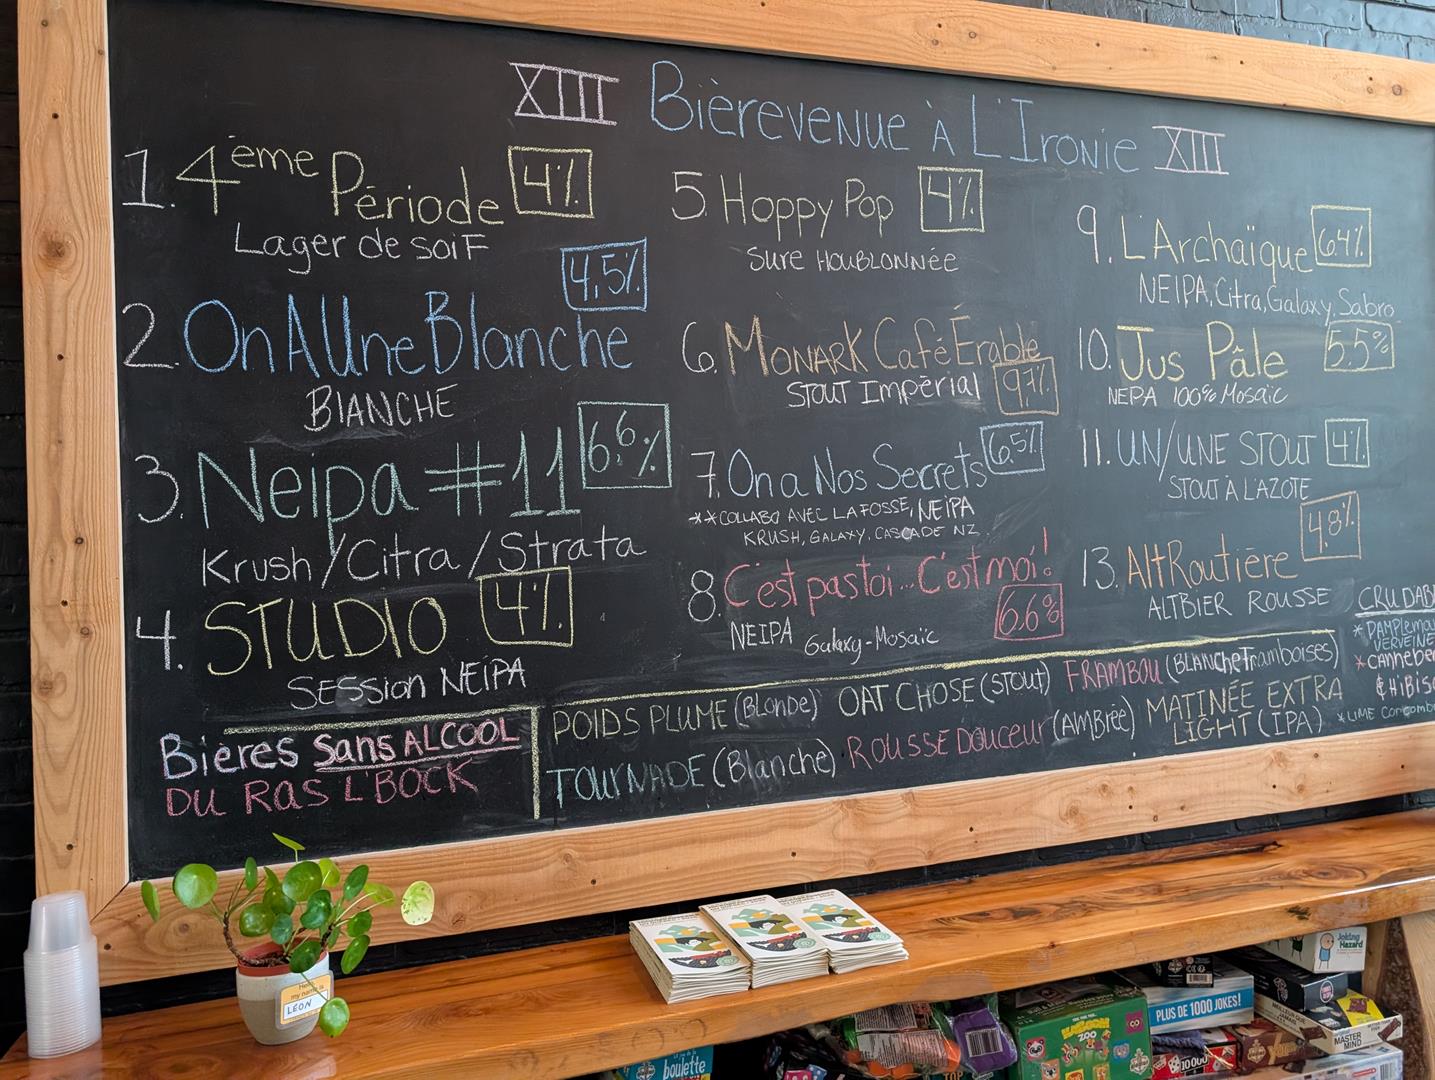 XIII Bièrevenue à L'Ironie XIII
1. 4ème Période 4%
Lager de soif
2. On A Une Blanche 4,5%
BLANCHE
3. Neipa #11 6,6%
Krush/Citra/Strata
4. STUDIO 4%
SESSION NEIPA
5 Hoppy Pop 4%
Sure HOUBLONNÉE
6. MONARK Café Érable
STOUT Impérial 9,7%
7. On a Nos Secrets 6,5%
**COLLABO AVEC LAFOSSE, NEIPA
KRUSH, GALAXY, CASCADE NZ
8. C'est pas toi... C'est moi!
NEIPA Galaxy-Mosaïc 6.6%
9. L'Archaïque 6.4%
NEIPA, Citra, Galaxy, Sabro
10. Jus Pâle 5.5%
NEPA 100% Mosaïc
11. UN/UNE STOUT 4%
STOUT À L'AZOTE
13. AltRoutière 4,8%
ALTBIER ROUSSE
CRUDAB
*PAMPLEMO
VERVEINE
*CANNEBE
& HIBIS
*LIME Concomb
Bières Sans ALCOOL
DU RAS L'BOCK
POIDS PLUME (Blonde) OAT CHOSE (STOUT) FRAMBOU (BLANCHE Framboises)
TOURNADE (Blanche) ROUSSE DOUCEUR (AMBRÉE) MATINÉE EXTRA
LIGHT (IPA)
Hello
my name is
LÉON
boulette
KABOOM
ZOO
PLUS DE 1000 JOKES!
Joking
Hazard
MASTER
MIND
10 000
TOP